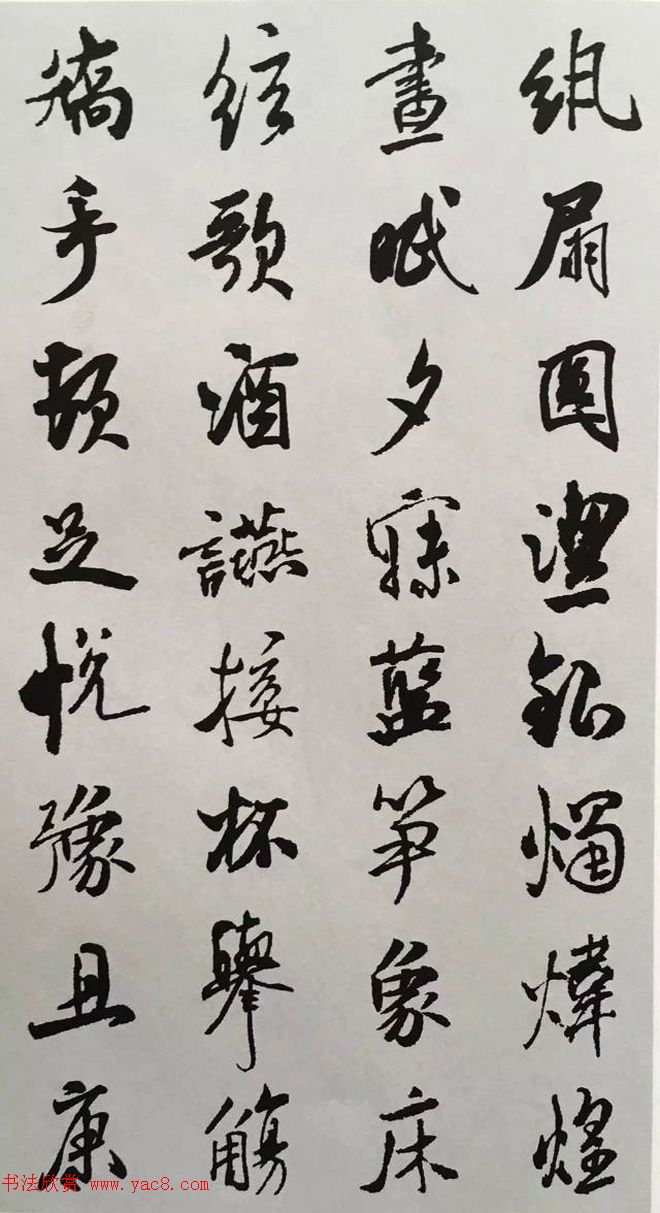 紈扇圓潔銀燭煒煌
晝眠夕寐藍笋象床
絃歌酒讌接杯舉觴
矯手頓足悅豫且康
书法欣赏 www.yac8.com